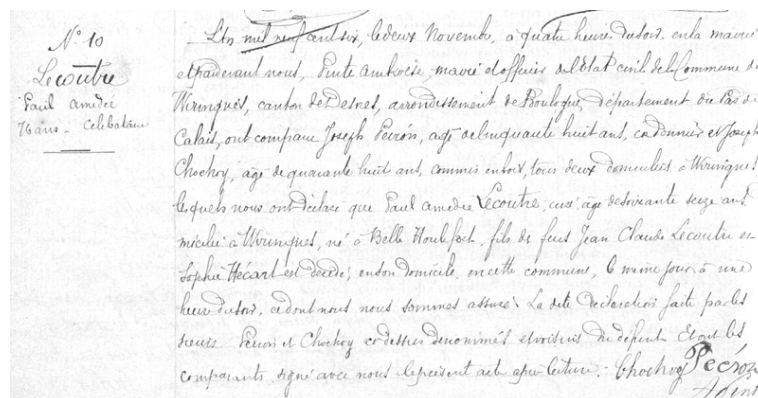 N° 10
Lecoutre
Paul Amédée
76 ans - Célibataire
L'an mil neuf cent six, le deux Novembre, à quatre heures du soir, en la mairie
et pardevant nous, Pinte Ambroise, maire et officier de l'Etat civil de la Commune de
Wirwignes, canton de Desvres, arrondissement de Boulogne, département du Pas de
Calais, ont comparu Joseph Peiron, agé de cinquante huit ans, cordonnier et Joseph
Chochoy, âgé de quarante huit ans, commis en bois, tous deux domiciliés à Wirwignes,
lesquels nous ont déclaré que Paul Amédée Lecoutre, âgé de soixante seize ans
à Wirwignes, né à Belle Houllefort, fils de feus Jean Claude Lecoutre et
Sophie Hécart est décédé, en son domicile, en cette commune, ce même jour à une
heure du soir, ce dont nous nous sommes assuré. La dite déclaration faite par les
sieurs Peiron et Chochoy ci-dessus dénommés et voisins du défunt. Et ont les
comparants, signé avec nous le présent acte après lecture. Chochoy